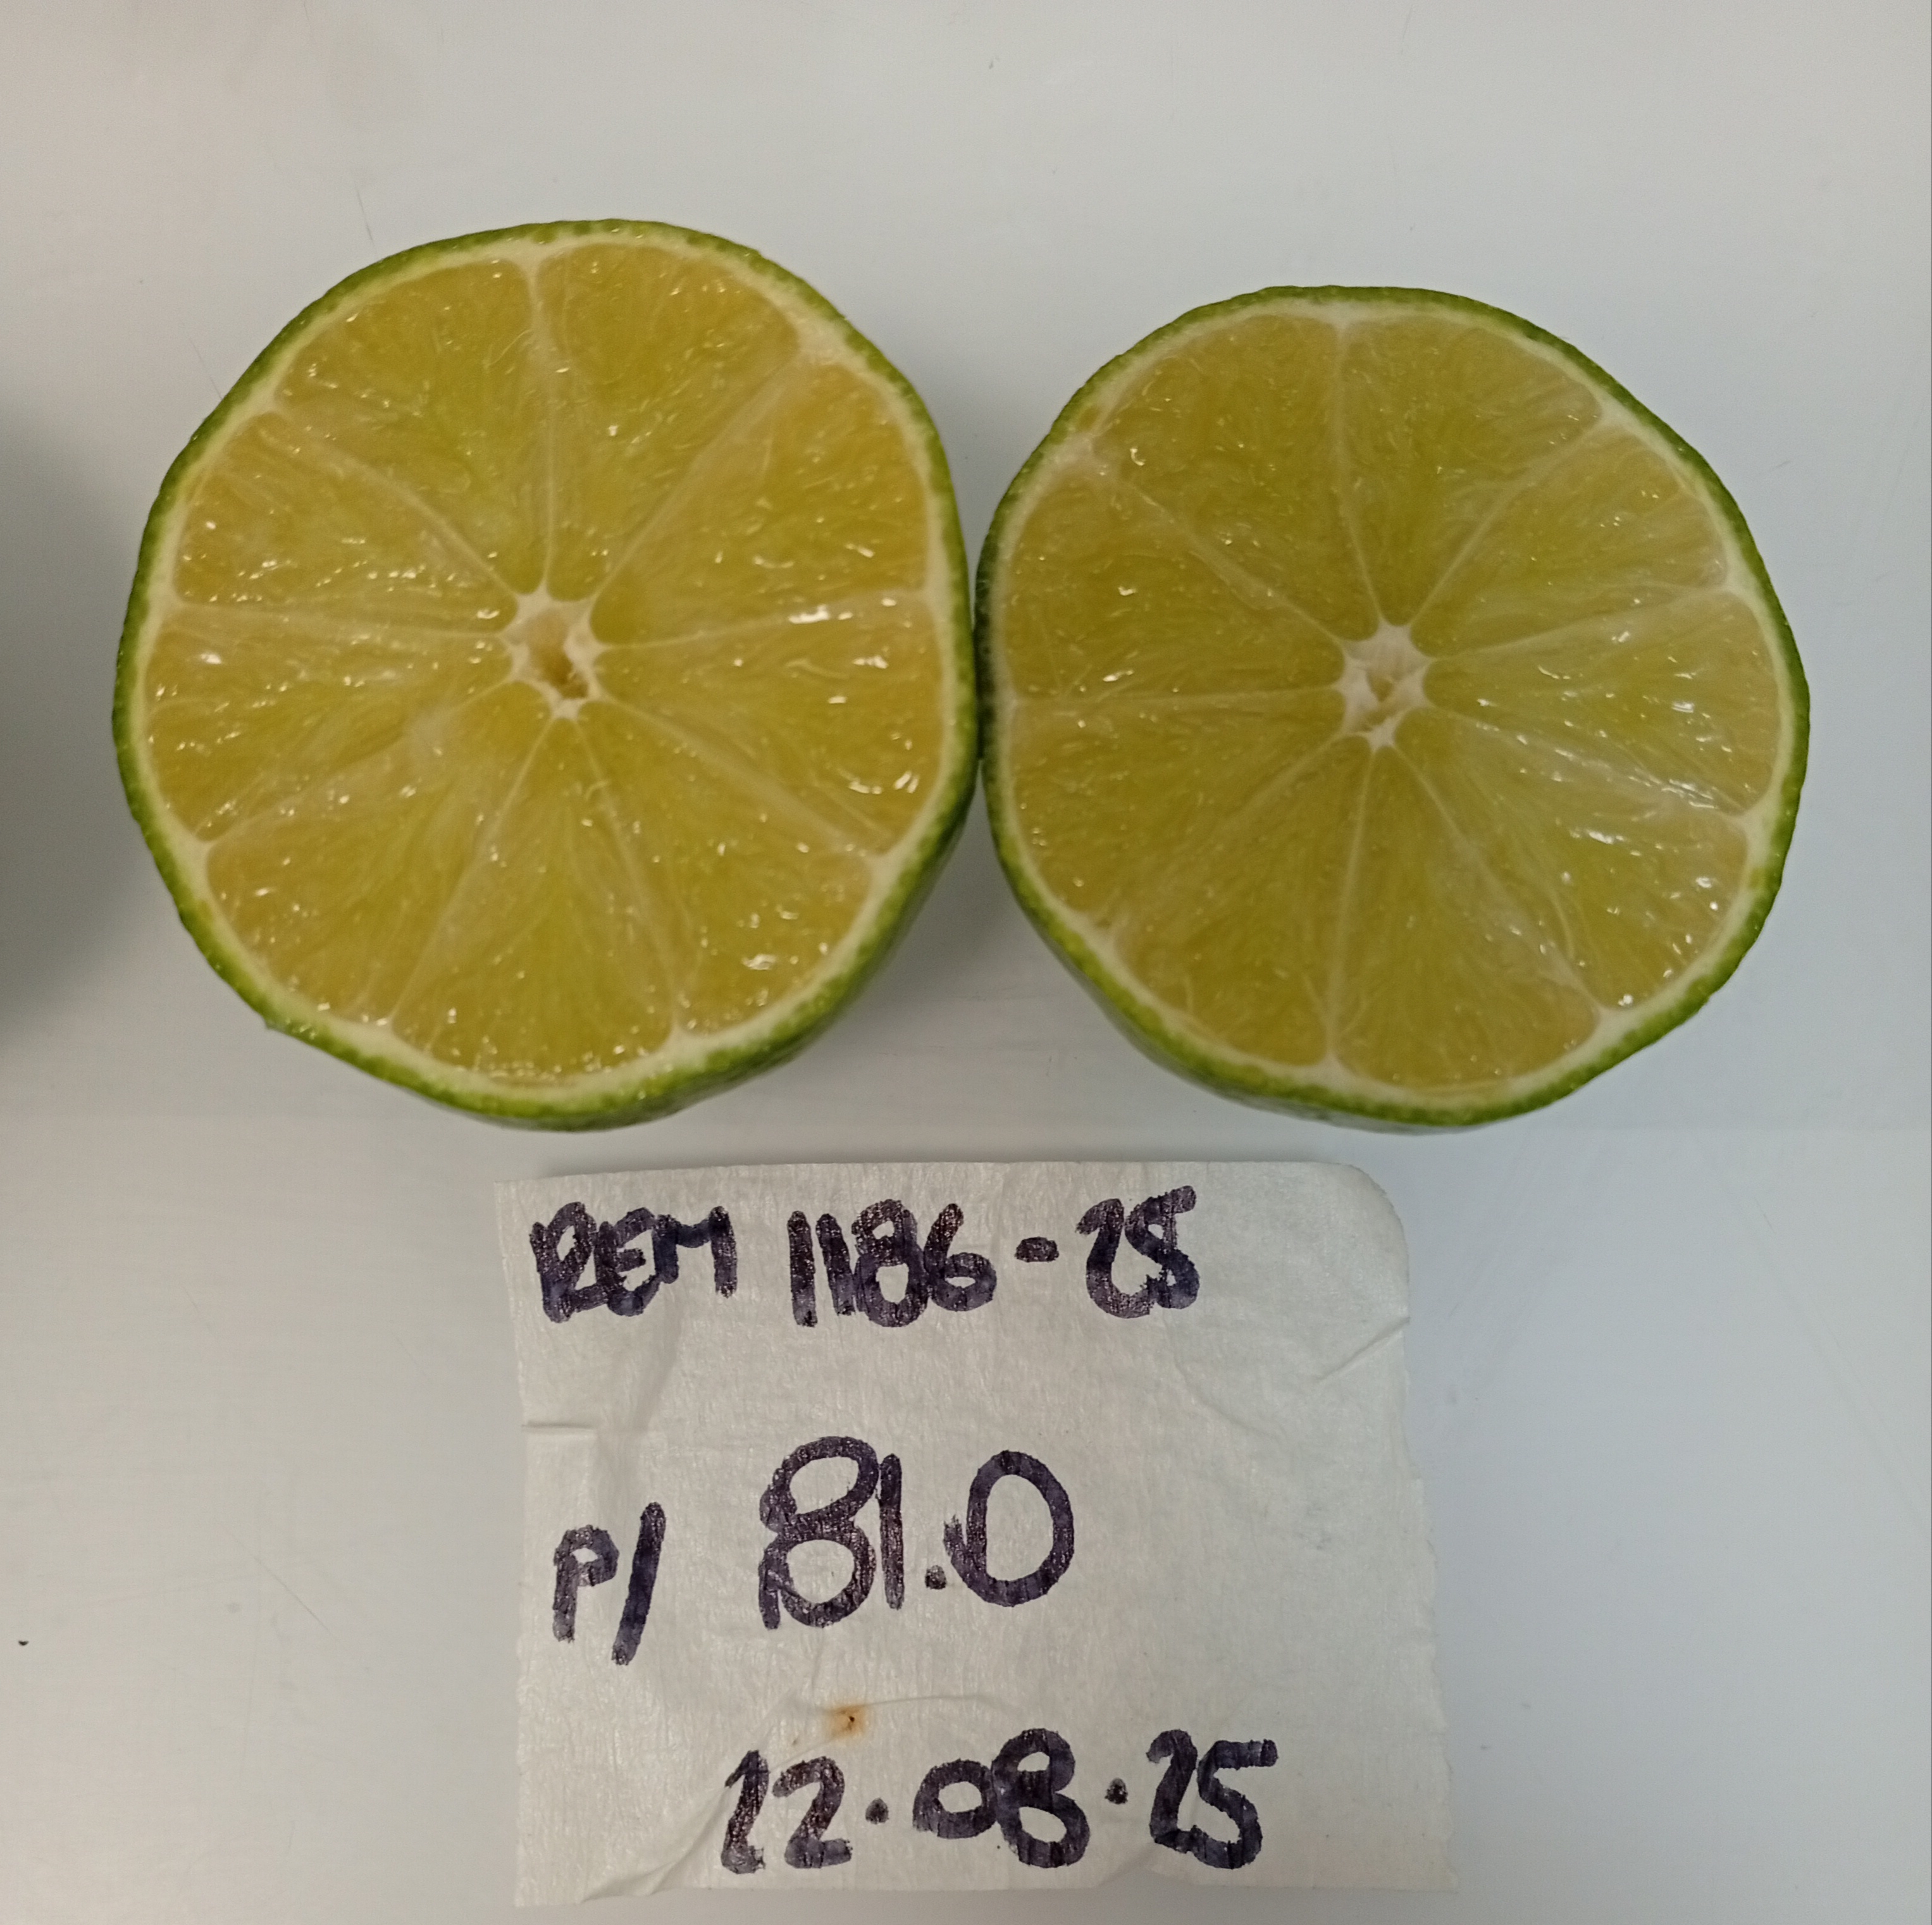 REM 1186-25
P/ 81.0
22.08.25